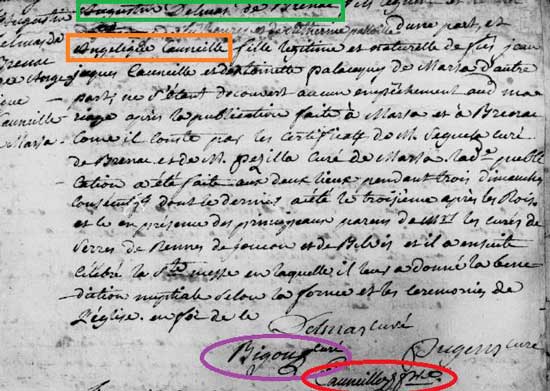 Augustin Delmas de Brenac
d'une part, et
Angelique Cauneille fille legitime et naturelle de feu jean
jaques Cauneille et d'antoinette palacques de Marsa d'autre
part, ne s'étant decouvert aucun empechement aud. ma
riage après la publication faite à Marsa et à Brenac
come il conste par les certificats de M. curé
de Brenac et de M. curé de Marsa lad.e publi
cation a été faite aux deux lieux pendant trois dimanches
consécutifs dont le dernier a été le troisième après les Rois
et le en presence des principaux parens de les curés de
Serres de Rennes de joucou et de Belvis et il a ensuite
celebré la Ste messe en laquelle il leur a donné la bene
diction nuptiale selon la forme et les ceremonies de
l'église. en foi de le
Delmas curé
Bigou curé
Dugens curé
Cauneille
Delmas de
Brenac
Ange
Cauneille
Marsa